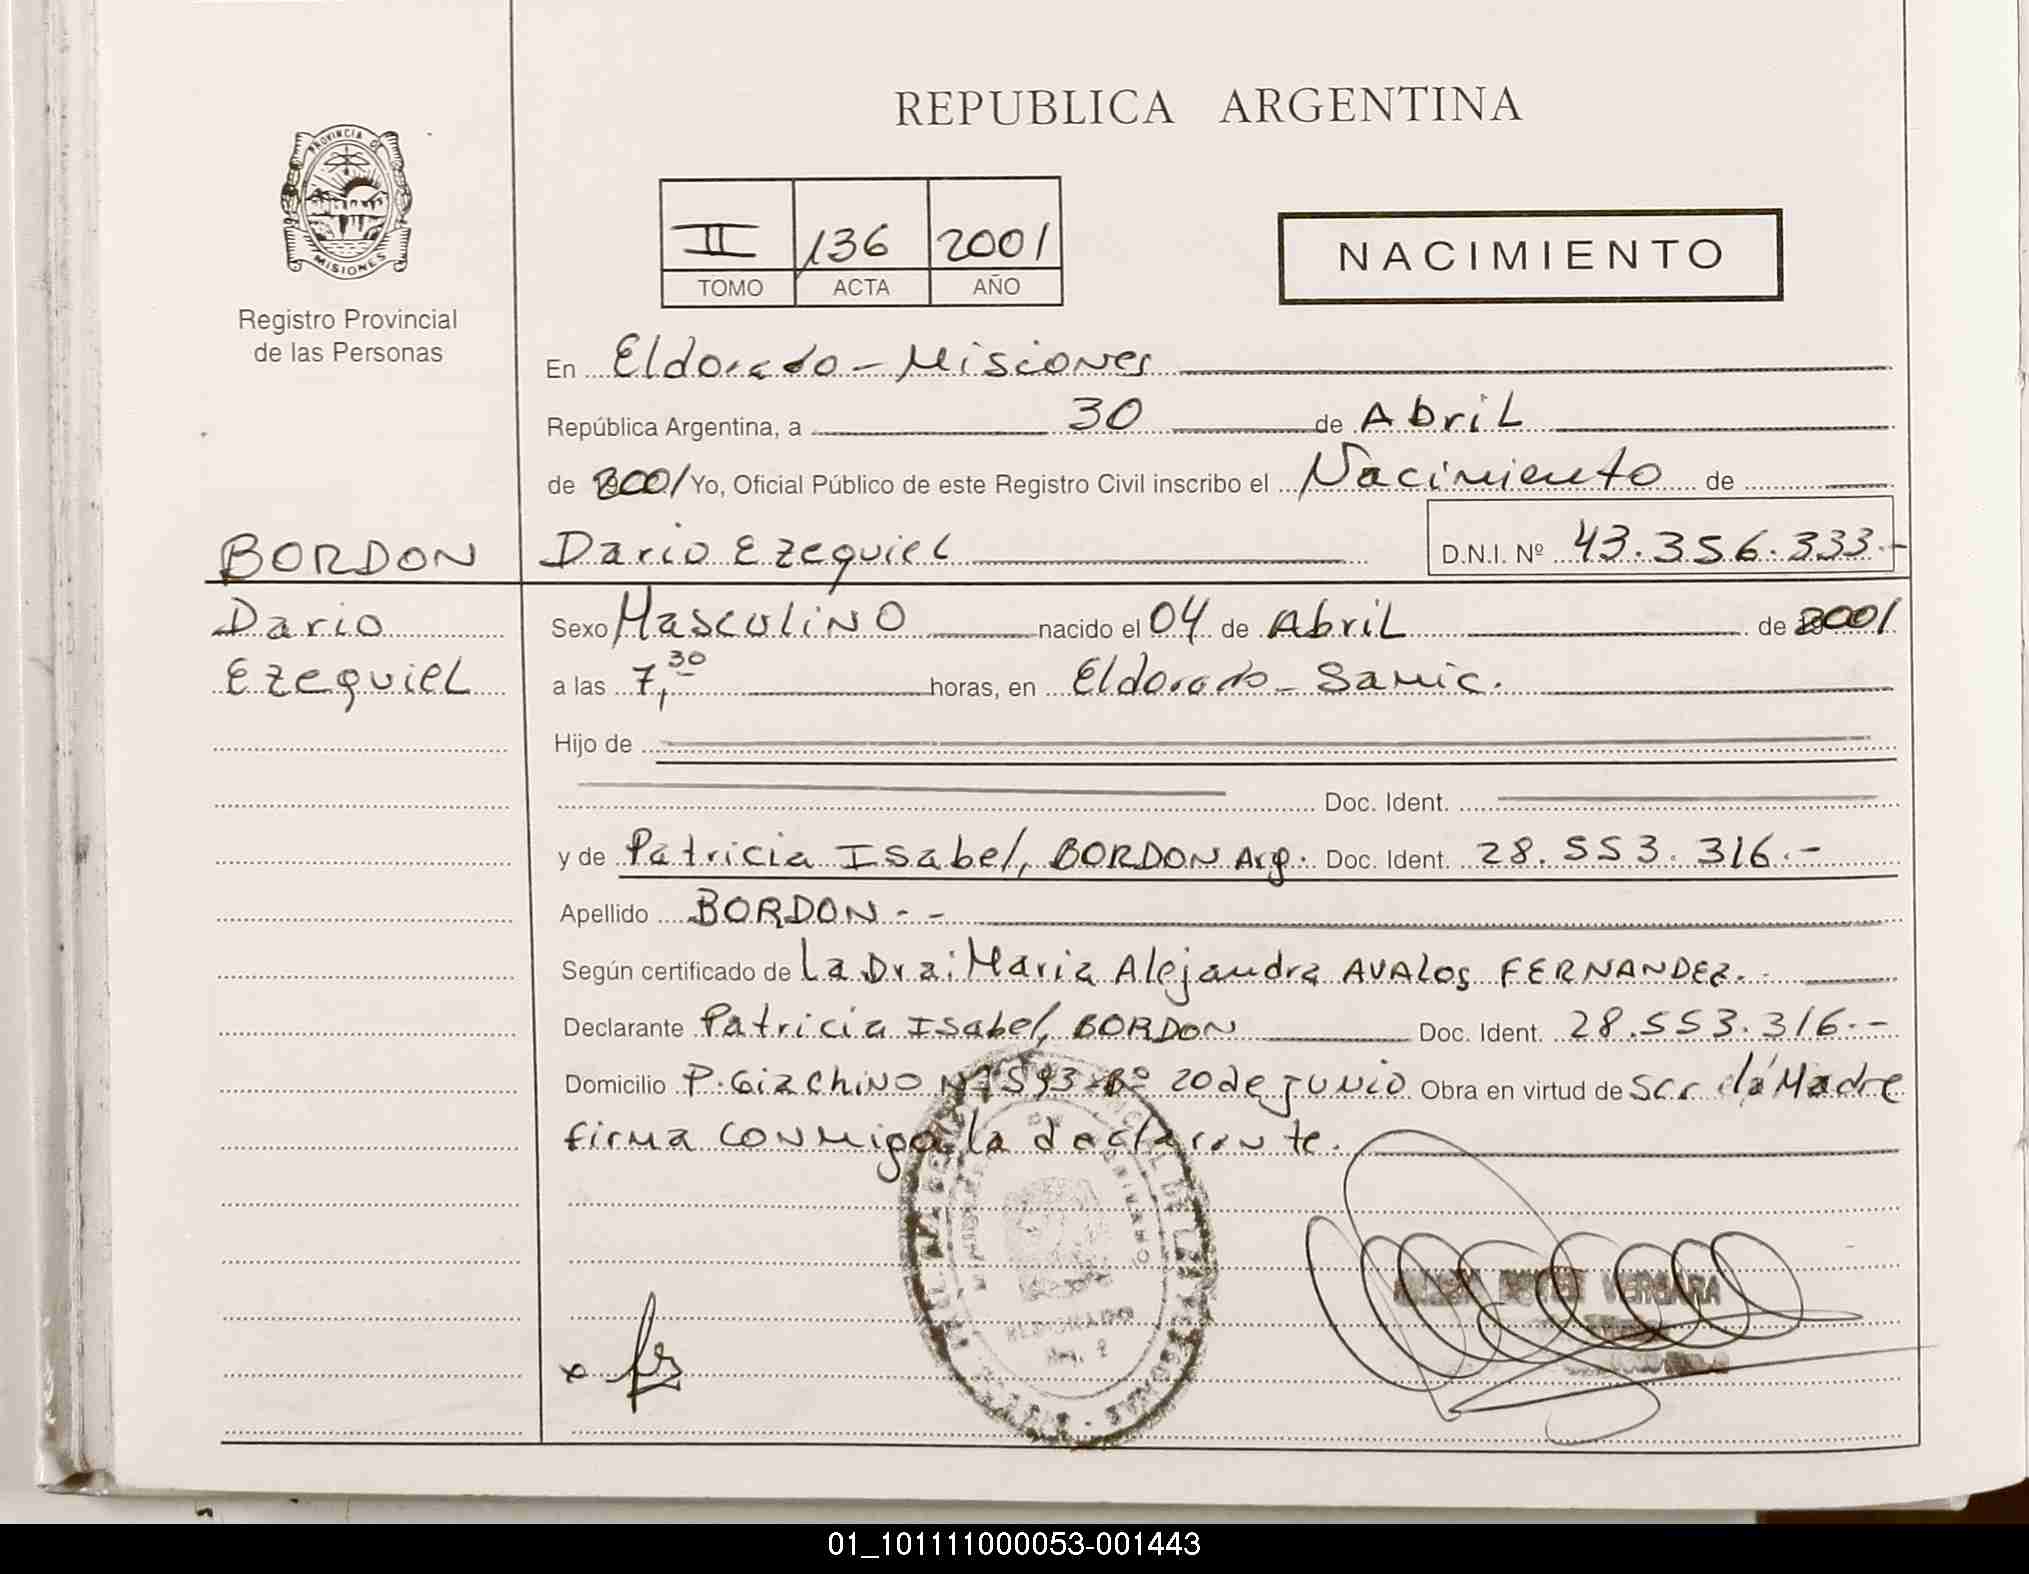 REPUBLICA ARGENTINA
PROVINCIA DE
MISIONES
Registro Provincial
de las Personas
II 136 2001
TOMO ACTA AÑO
NACIMIENTO
En Eldorado - Misiones
República Argentina, a 30 de Abril
de 2001 Yo, Oficial Público de este Registro Civil inscribo el Nacimiento de
BORDON Dario Ezequiel D.N.I. Nº 43.356.333.-
Dario Sexo Masculino nacido el 04 de Abril de 2001
Ezequiel a las 7,30 horas, en Eldorado - Samic.
Hijo de
Doc. Ident.
y de Patricia Isabel, BORDON Arg. Doc. Ident. 28.553.316.-
Apellido BORDON - -
Según certificado de La Dra: Maria Alejandra AVALOS FERNANDEZ.
Declarante Patricia Isabel, BORDON Doc. Ident. 28.553.316.-
Domicilio P. Giachino Nº 593 Bº 20 de junio Obra en virtud de ser la Madre
firma conmigo la declarante.
ELDORADO
01_101111000053-001443